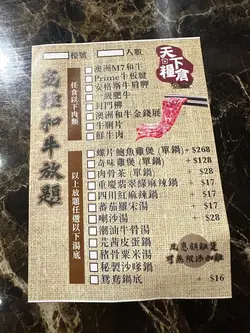 天下糧倉
檯號
人數
和牛放題
任食以下肉類
澳洲M7和牛
Prime牛板腱
安格斯牛肩胛
一級肥牛
封門柳
澳洲和牛金錢展
牛脷片
鮮牛肉
以上放題任選以下湯底
螺片鮑魚雞煲（單鍋）+ $268
奇味雞煲（單鍋）+ $128
肉骨茶（單鍋）+ $28
重慶翡翠緣麻辣鍋 + $17
四川紅麻辣鍋 + $17
蕃茄薯米湯 + $17
喇沙湯 + $28
潮油牛骨湯
芫茜皮蛋鍋
豬骨粟米湯
秘製沙嗲鍋
鴛鴦鍋底 + $16
可無限添加雞